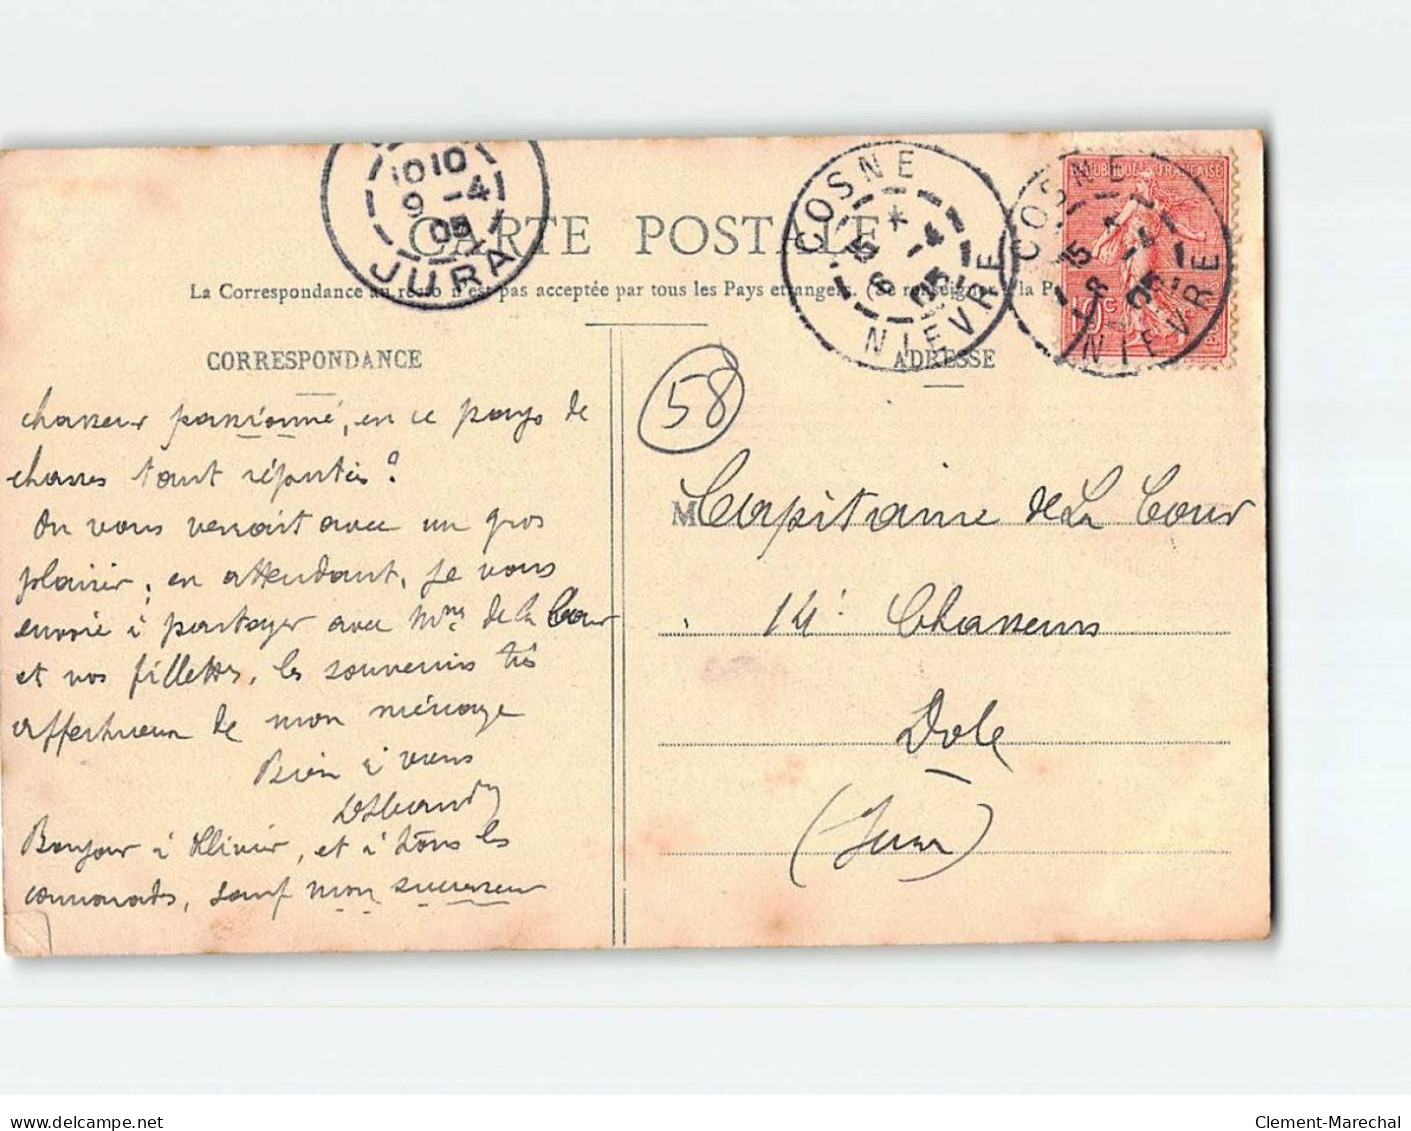 1010
9 -4
05
JURA
COSNE
15 *
6 -4
05
NIEVRE
COSNE
15
8 -4
05
NIEVRE
REPUBLIQUE FRANÇAISE
10c
CARTE POSTALE
La Correspondance au recto n'est pas acceptée par tous les Pays etrangers. (Se renseigner à la P
CORRESPONDANCE
ADRESSE
58
chasseur passionné, en ce pays de
chasses tant réputées?
On vous verrait avec un gros
plaisir; en attendant, je vous
envoie à partager avec Mme de la Cour
et vos fillettes, les souvenirs très
affectueux de mon ménage
Bien à vous
Bonjour à Ollivier, et à tous les
camarades, sauf mon successeur
M Capitaine de La Cour
14e Chasseurs
Dole
(Jura)
delcampe.net
Clement-Marechal